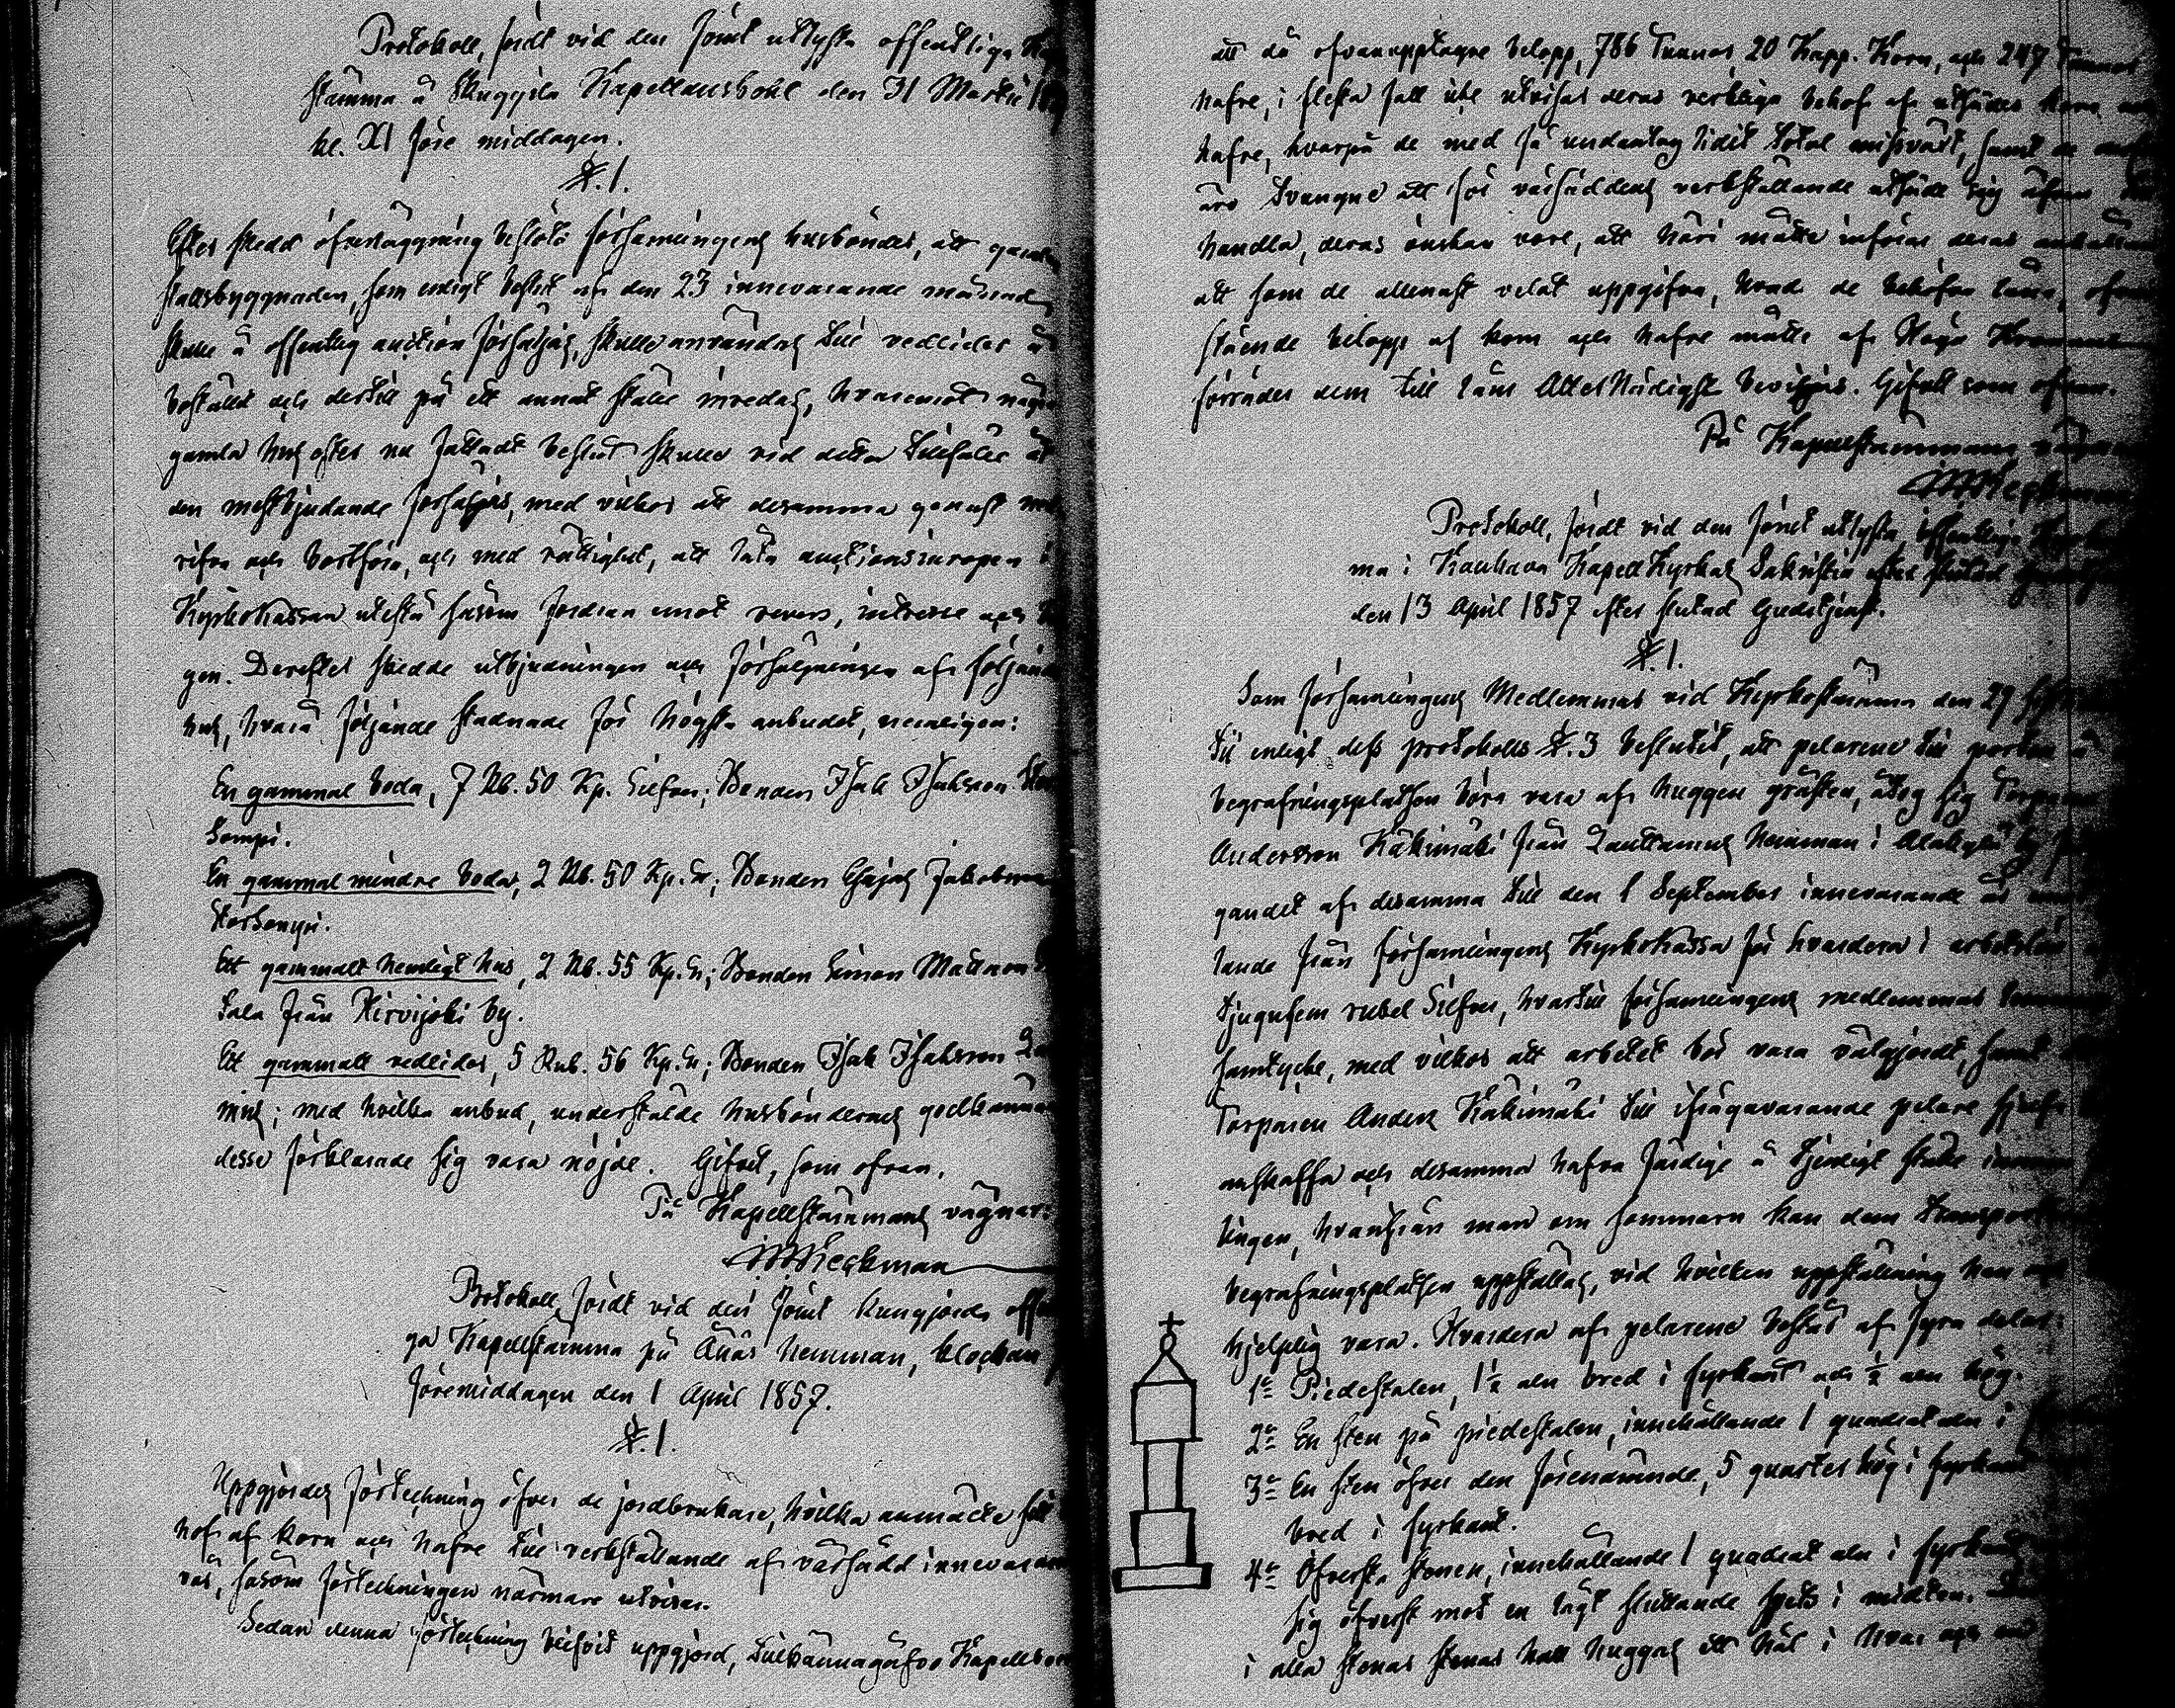 Protokoll, fördt vid den förut utlysta offentliga
stämma å Skuggila Kapellansbohl den 31 Martii
kl. XI före middagen.
§. 1.
Efter skedd öfverläggning beslöto församlingens husbönder, att gamla
stallsbyggnaden, som enligt beslut af den 23 innevarande månad
skulle å offentlig auction försäljas, skulle användas till vedlider å
bostället och dertill på ett annat ställe inredas, hvaremot några
gamla hus efter nu fattadt beslut skulle vid detta tillfälle åt
den mestbjudande försäljas, med vilkor att desamma genast
rifva och bortföra, och med rättighet, att låta auctionsinropen i
Kyrkokassan utestå såsom fordran emot revers, intresse och
gen. Derefter skedde utbjudningen och försäljningen af följande
hus, hvarå följande stadnade för högsta anbudet, nemligen:
En gammal boda, 7 Rub. 50 Kp. Silfver; Bonden Isak Isaksson
Sompi.
En gammal mindre boda, 2 Rub. 50 Kp. Sr; Bonden Esajas Jakobsson
Storsompi.
Ett gammalt hemligt hus, 2 Rub. 55 Kp. Sr; Bonden Simon Mattsson
Sala från Hirvijoki by.
Ett gammalt vedlider, 5 Rub. 56 Kp. Sr; Bonden Isak Isaksson
med hvilka anbud, underställde husböndernas godkännande
desse förklarade sig vara nöjde. Gifvet, som ofvan,
På Kapellstämmans vägnar:
Heckman
Protokoll, fördt vid den förut kungjorda
ga Kapellstämma på Ånäs Hemman, klockan
föremiddagen den 1 April 1857.
§. 1.
Uppgjordes förteckning öfver de jordbrukare, hvilka anmälte sitt
hof af korn och hafre till verkställande af vårsådd innevarande
vår, såsom förteckningen närmare utvisar.
Sedan denna förteckning blifvit uppgjord, tillkännagåfvo
att då ofvanupptagne belopp, 786 Tunnor, 20 Kapp. Korn, och 247 Tunnor
hafre, i flesta fall icke utvisar deras verkliga behof af utsädes korn
hafre, hvarpå de med få undantag lidit total missväxt, samt de
äro tvungne att för vårsäddens verkställande utsäde sig äfven
handla, deras önskan vore, att häri måtte införas deras anhållan
att som de allenast velat uppgifva, hvad de behöfva låna,
stående belopp af korn och hafre måtte af Höga Kronans
förråder dem till låns Allernådigst beviljas. Gifvet som ofvan.
På Kapellstämmans vägnar
Heckman
Protokoll, fördt vid den förut utlysta, offentliga
ma i Kauhava Kapell Kyrkas Sakristia efter slutad
den 13 April 1857 efter slutad Gudstjenst.
§. 1.
Som församlingens Medlemmar vid Kyrkostämma den 29
enligt dess protokolls §. 3 beslutit, att pelarene till porten å
begrafningsplatsen böra vara af huggen gråsten, åtog sig Torparen
Andersson Käkimäki från hemman i Alakylä by
gandet af desamma till den 1 September innevarande år
lande från församlingens Kyrkokassa för hvardera i arbetslön
tjugufem rubel Silfver, hvartill församlingens medlemmar
samtycke, med vilkor att arbetet bör vara välgjordt, samt
Torparen Anders Käkimäki till ifrågavarande pelare sjelf
anskaffa och desamma hafva färdige å tjenligt ställe
lingen, hvarifrån man om sommarn kan dem transportera
begrafningsplatsen uppställas, vid hvilken uppställning han
hjelplig vara. Hvardera af pelarene består af fyra delar:
1e Piedestalen, 1½ aln bred i fyrkant och ½ aln hög.
2e En sten på piedestalen, innehållande 1 quadrat aln i
3e En sten öfver den förenämnde, 5 quarter hög i fyrkant
bred i fyrkant.
4e Öfversta stenen, innehållande 1 quadrat aln i fyrkant
sig öfverst mot en lågt sluttande spets i midten.
i alla stenar skall huggas ett hål i hvar och en